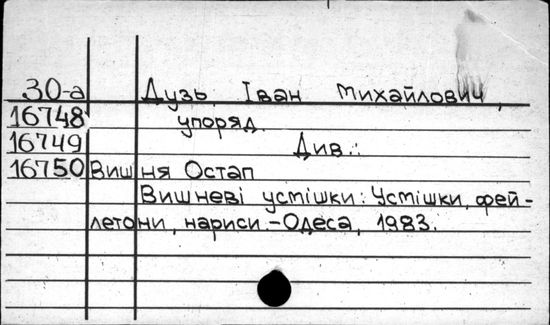 30-а Дузь Іван Михайлович,
16748 упоряд.
16749 Див.:
16750 Вишня Остап
Вишневі усмішки: Усмішки, фей-
летони, нариси.-Одеса, 1983.